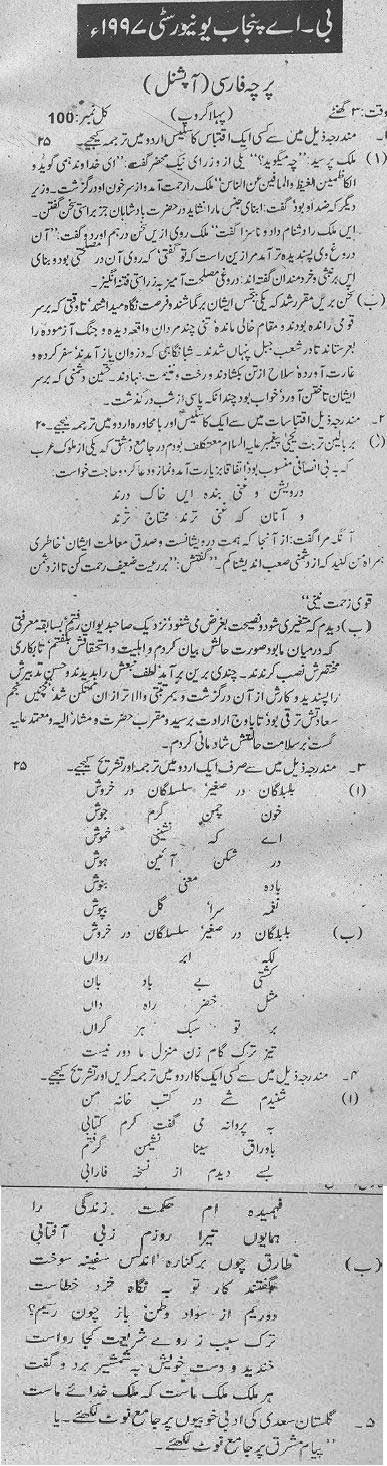 بی۔ اے پنجاب یونیورسٹی ۱۹۹۷ء
پرچہ فارسی (آپشنل)
وقت: ۳ گھنٹے (پہلا گروپ) کل نمبر: 100
۱۔ مندرجہ ذیل میں سے کسی ایک اقتباس کا سلیس اردو میں ترجمہ کیجیے۔ ۲۵
(۱) ملک پرسید: "چہ میگوید؟" یکی از وزرای نیک محضر گفت: "ای خداوند ہمی گوید و
الکاظمین الغیظ والعافین عن الناس" ملک را رحمت آمد و از سر خون او در گزشت۔ وزیر
دیگر کہ ضد او بود گفت: ابنای جنس ما را نشاید در حضرت پادشاہان جز براستی سخن گفتن۔
این ملک را دشنام داد و ناسزا گفت" ملک روی ازین سخن در ہم اورد و گفت: "آن
دروغ وی پسندیدہ تر آمد مرا زین راست کہ تو گفتی، کہ روی آن در مصلحتی بود و بنای
این بر خبثی و خردمندان گفتہ اند: دروغی مصلحت آمیز بہ ز راستی فتنہ انگیز۔
(ب) سخن برین مقرر شد کہ یکی بہ تجسس ایشان برگماشتند و فرصت نگاہ میداشتند، تا وقتی کہ بر سر
قومی راندہ بودند و مقام خالی ماندہ، تنی چند مردان واقعہ دیدہ و جنگ آزمودہ را
بفرستادند تا در شعب جبل پنہاں شدند۔ شبانگاہی کہ دزدان باز آمدند، سفر کردہ و
غارت آوردہ، سلاح از تن بکشادند و رخت و غنیمت بنہادند۔ نخستین دشمنی کہ بر سر
ایشان تاختن آورد خواب بود چندانکہ پاسی از شب در گذشت۔
۲۔ مندرجہ ذیل اقتباسات میں سے ایک کا سلیس اور بامحاورہ اردو میں ترجمہ کیجیے۔ ۲۰
(۱) بر بالین تربت یحییٰ پیغمبر علیہ السلام معتکف بودم در جامع دمشق کہ یکی از ملوک عرب
کہ بہ بی انصافی منسوب بود اتفاقاً بزیارت آمد و نماز و دعا کرد و حاجت خواست:
درویش و غنی بندہ این خاک درند
و آنان کہ غنی ترند محتاج ترند
آنگہ مرا گفت: از آنجا کہ ہمت درویشانست و صدق معاملت ایشان، خاطری
ہمراہ من کنید کہ از دشمنی صعب اندیشناکم۔ "گفتمش: "بر رعیت ضعیف رحمت کن تا از دشمن
قوی زحمت نبینی"
(ب) دیدم کہ متغیر می شود و نصیحت بغرض می شنود، نزدیک صاحب دیوان رفتم، بسابقہ معرفتی
کہ در میان ما بود صورت حالش بیان کردم و اہلیت و استحقاقش بگفتم، تا بکاری
مختصرش نصب کردند۔ چندی برین بر آمد، لطف طبعش را بدیدند و حسن تدبیرش
را پسندید و کارش از آن درگزشت و بمرتبتی والاتر از ان متمکن شد، ہمچنین نجم
سعادتش ترقی بود تا باوج ارادت برسید و مقرب حضرت و مشار الیہ و معتمد علیہ
گست، بر سلامت حالتش شادمانی کردم۔
۳۔ مندرجہ ذیل میں سے صرف ایک اردو میں ترجمہ اور تشریح کیجیے۔ ۲۵
(۱) بلبلگان در صفیر، سلسلگان در خروش
خون چمن گرم جوش
اے کہ نشینی خموش
در شکن آئین ہوش
بادہ معنی بنوش
نغمہ سرا گل بپوش
(ب) بلبلگان در صفیر، سلسلگان در خروش
لکہ ابر رواں
کشتی بے باد بان
مثل خضر راہ داں
بر تو سبک ہر گراں
تیز ترک گام زن منزل ما دور نیست
۴۔ مندرجہ ذیل میں سے کسی ایک کا اردو میں ترجمہ کریں اور تشریح کیجیے۔
(۱) شنیدم شبے در کتب خانہ من
بہ پروانہ می گفت کرم کتابی
باوراق سینا نشیمن گرفتم
بسے دیدم از نسخہ فارابی
فہمیدہ ام حکمت زندگی را
ہمایوں تیرا روزم زبی آفتابی
(ب) طارق چوں بر کنارہ اندلس سفینہ سوخت
گفتند کار تو بہ نگاہ خرد خطاست
دوریم از سواد وطن باز چون رسیم؟
ترک سبب ز روے شریعت کجا رواست
خندید و دست خویش بہ شمشیر برد و گفت
ہر ملک ملک ماست کہ ملک خدائے ماست
۵۔ گلستان سعدی کی ادبی خوبیوں پر جامع نوٹ لکھئے۔ یا
"پیام مشرق پر جامع نوٹ لکھئے۔